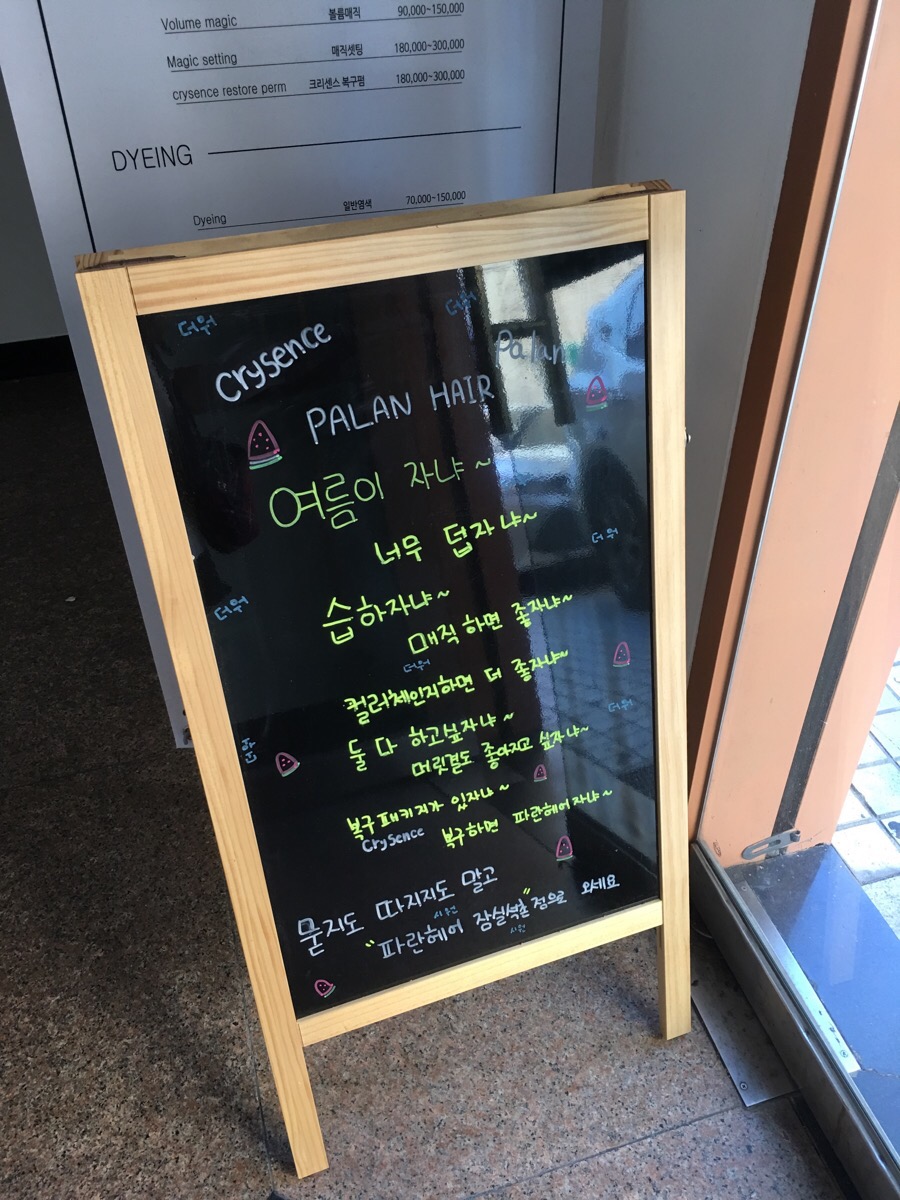 Volume magic 볼륨매직 90,000~150,000
Magic setting 매직셋팅 180,000~300,000
crysence restore perm 크리센스 복구펌 180,000~300,000
DYEING
Dyeing 일반염색 70,000~150,000
더워 더워
Crysence Palan
PALAN HAIR
여름이 자냐~
너무 덥자냐~
더워
더워
습하자냐~
매직하면 좋자냐~
더워
컬러체인지하면 더 좋자냐~
더워
둘 다 하고싶자냐~
머릿결도 좋아지고 싶자냐~
복구패키지가 있자냐~
Crysence 복구하면 파란헤어자냐~
묻지도 따지지도 말고
시원
"파란헤어 잠실석촌"점으로 오세요
시원